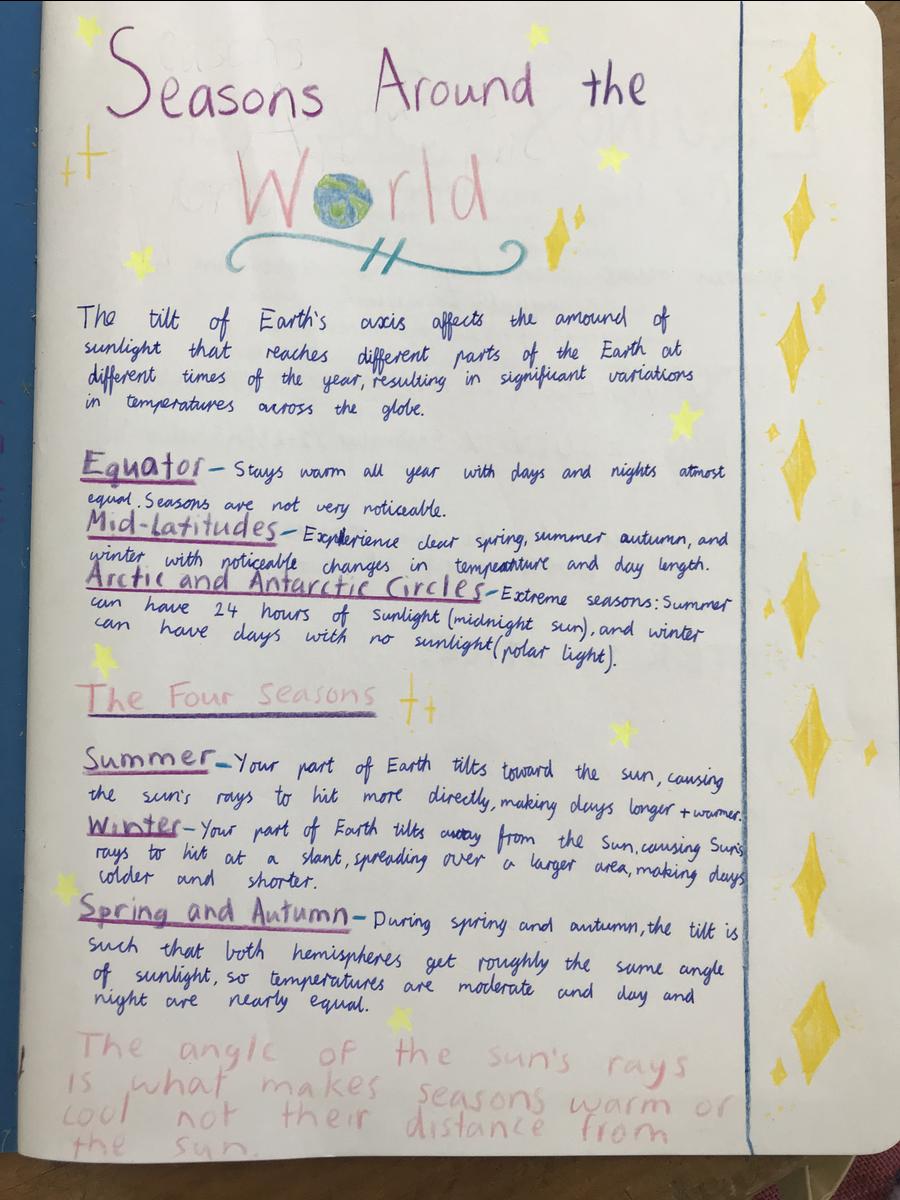 Seasons Around the
World
The tilt of Earth's axis affects the amound of
sunlight that reaches different parts of the Earth at
different times of the year, resulting in significant variations
in temperatures across the globe.
Equator - Stays warm all year with days and nights atmost
equal. Seasons are not very noticeable.
Mid-Latitudes - Experience clear spring, summer autumn, and
winter with noticeable changes in temperature and day length.
Arctic and Antarctic Circles - Extreme seasons: Summer
can have 24 hours of sunlight (midnight sun), and winter
can have days with no sunlight (polar light).
The Four Seasons
Summer - Your part of Earth tilts toward the sun, causing
the sun's rays to hit more directly, making days longer + warmer.
Winter - Your part of Earth tilts away from the Sun, causing Sun's
rays to hit at a slant, spreading over a larger area, making days
colder and shorter.
Spring and Autumn - During spring and autumn, the tilt is
such that both hemispheres get roughly the same angle
of sunlight, so temperatures are moderate and day and
night are nearly equal.
The angle of the sun's rays
is what makes seasons warm or
cool not their distance from
the sun.